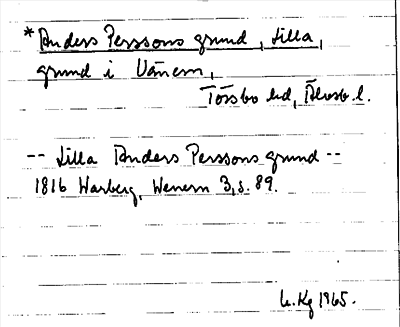 * Anders Perssons grund, Lilla,
grund i Vänern,
Tössbo hd, Älvsb. l.
-- Lilla Anders Perssons grund --
1816 Warberg, Wenern 3, s. 89.
1965.